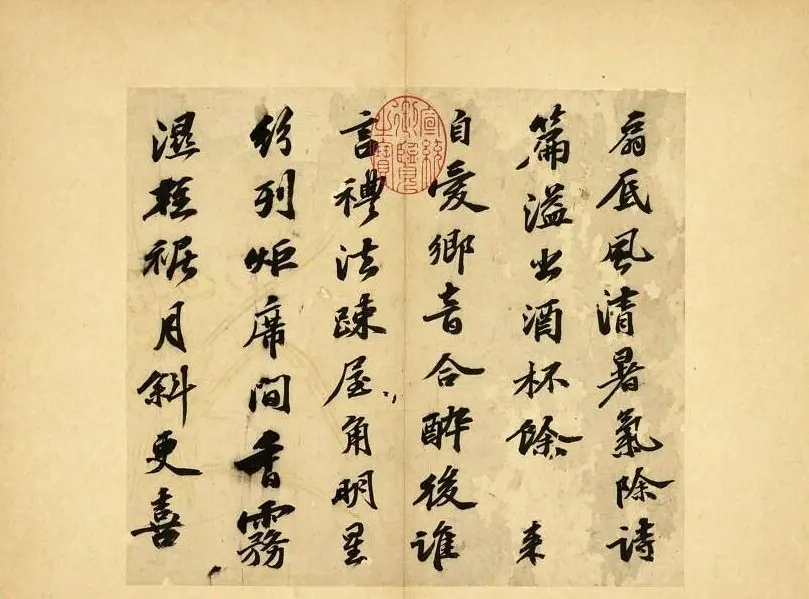 扇底風清暑氣除詩
篇溢出酒杯餘 来
自愛鄉音合醉後誰
言禮法踈屋角明星
紛列炬席間香霧
濕輕裾月斜更喜
宣統御覽之寶